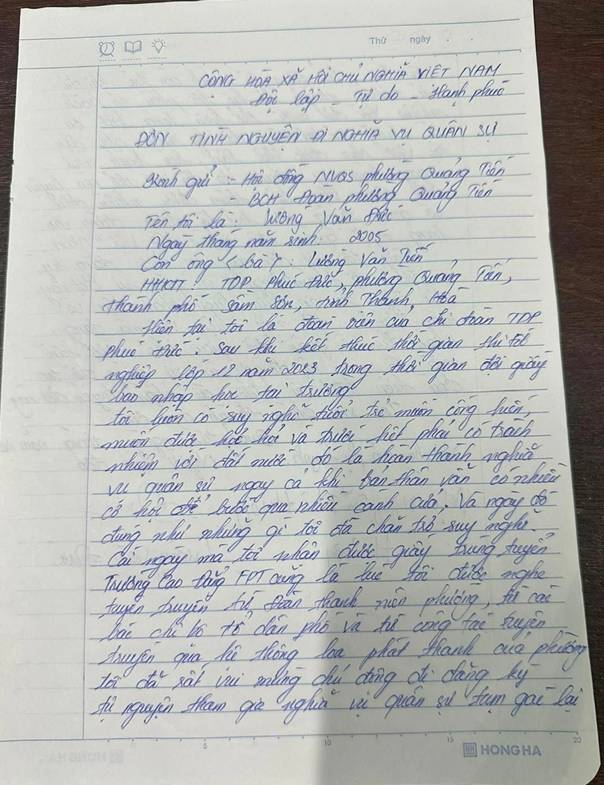 Thứ ngày
CỘNG HOÀ XÃ HỘI CHỦ NGHĨA VIỆT NAM
Độc lập - Tự do - Hạnh phúc
ĐƠN TÌNH NGUYỆN ĐI NGHĨA VỤ QUÂN SỰ
Kính gửi: - Hội đồng NVQS phường Quảng Tiến
- BCH Đoàn phường Quảng Tiến
Tên tôi là: Lường Văn Đức
Ngày tháng năm sinh: 2005
Con ông (bà): Lường Văn Tiến
HKTT: TDP Phúc Đức, phường Quảng Tiến,
thành phố Sầm Sơn, tỉnh Thanh Hóa
Hiện tại tôi là đoàn viên của chi đoàn TDP
phúc Đức. Sau khi kết thúc thời gian thi tốt
nghiệp lớp 12 năm 2023 trong thời gian đợi giấy
báo nhập học tại trường
tôi luôn có suy nghĩ tuổi trẻ muốn cống hiến,
muốn được học hỏi và trước hết phải có trách
nhiệm với đất nước đó là hoàn thành nghĩa
vụ quân sự ngay cả khi bản thân vẫn có nhiều
cơ hội để bước qua nhiều cánh cửa. Và ngày đó
đúng như những gì tôi đã chăn trở suy nghĩ.
Cái ngày mà tôi nhận được giấy trúng tuyển
Trường Cao đẳng FPT cũng là lúc tôi được nghe
tuyên truyền từ Đoàn thanh niên phường, từ các
bác chi bộ tổ dân phố và từ công tác tuyên
truyền qua hệ thống loa phát thanh của phường
tôi đã rất vui mừng chủ động đi đăng ký
tự nguyện tham gia nghĩa vụ quân sự tạm gác lại
5 10 15 20
HONG HA